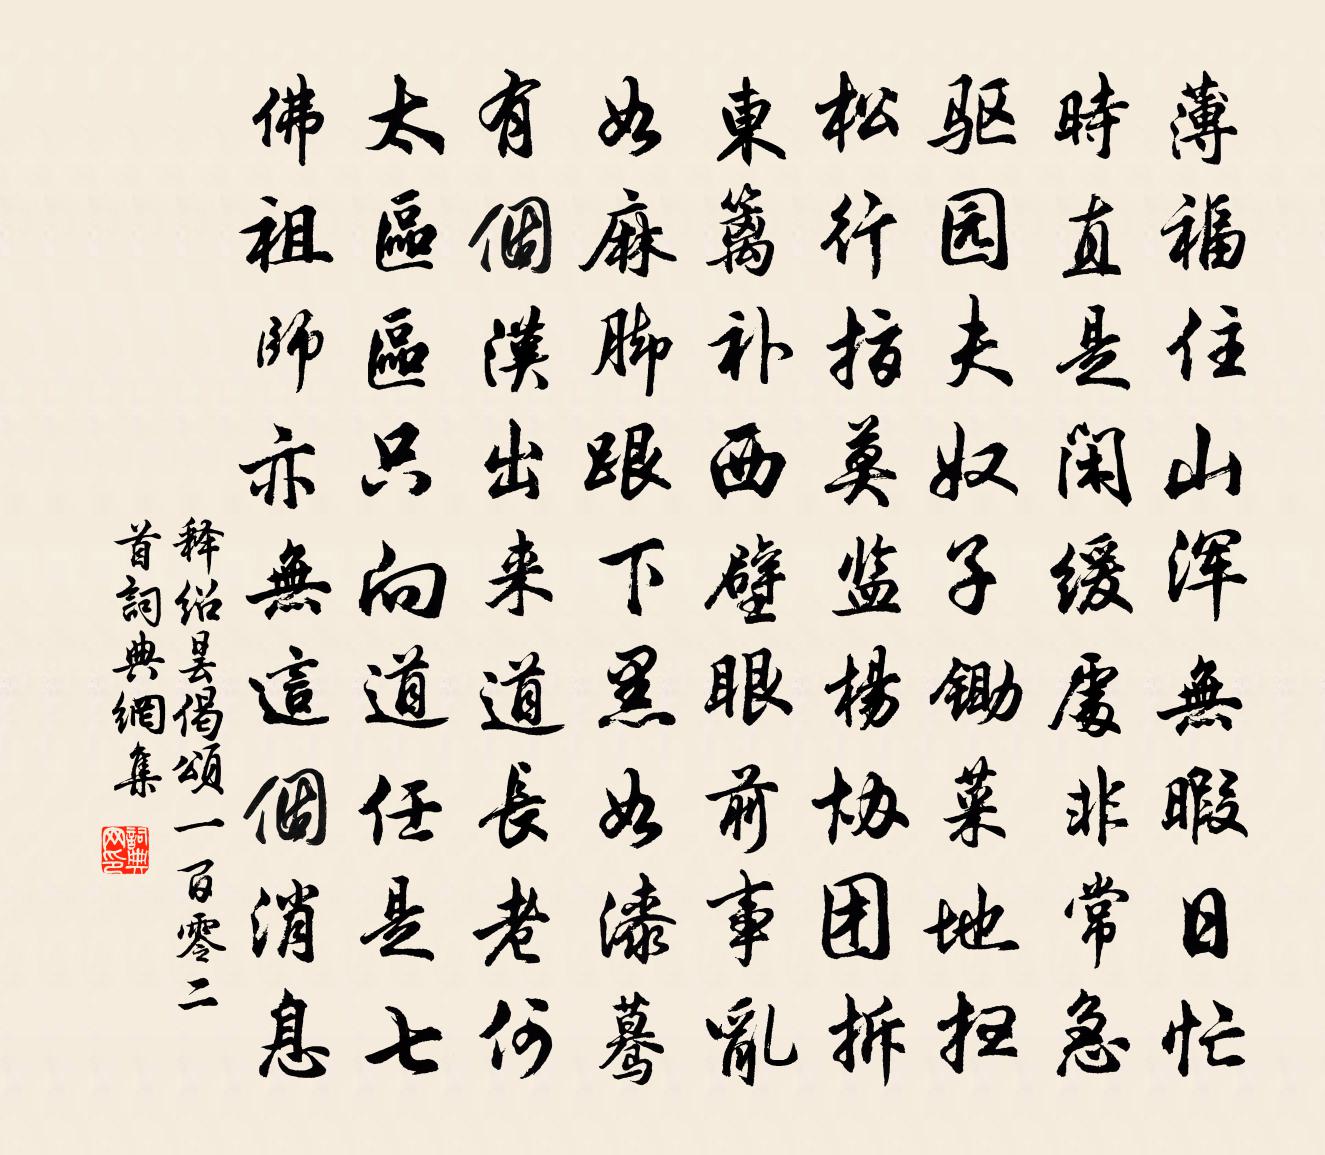 薄福住山浑無暇日忙
時直是闲缓處非常急
驱园夫奴子锄菜地扫
松行指莫监楊协团拆
東篱补西壁眼前事亂
如麻脚跟下黑如漆蓦
有個漢出来道長老何
太區區只向道任是七
佛祖師亦無這個消息
释绍昙偈頌一百零二
首詞典網集
詞典网印